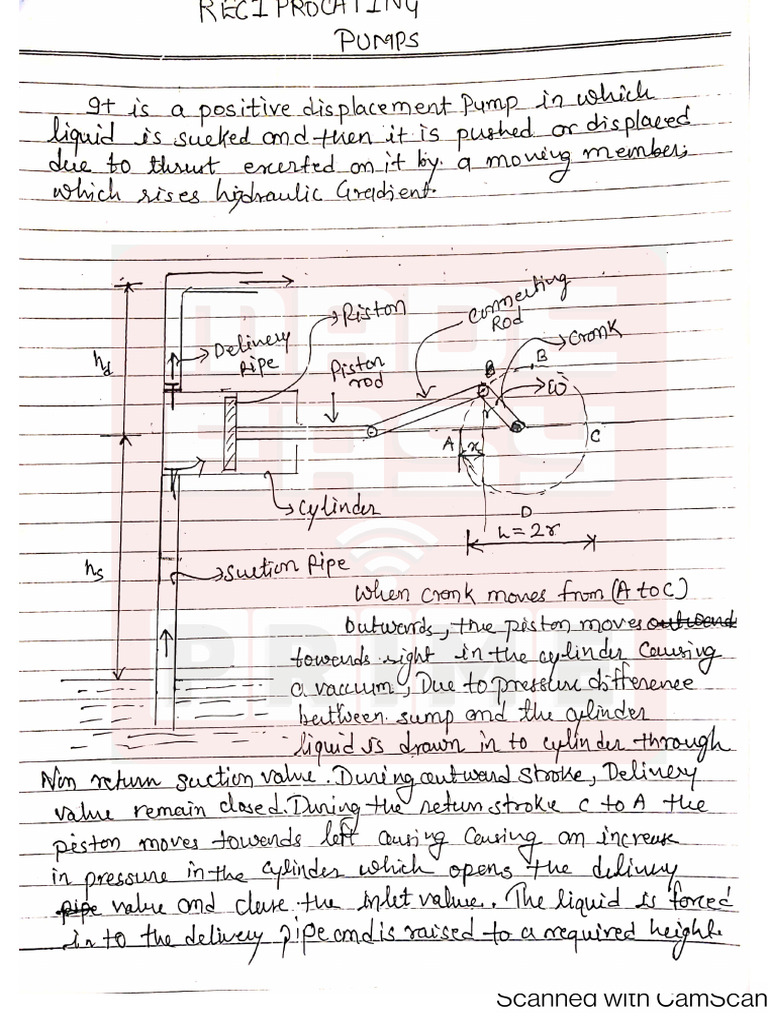 RECIPROCATING
PUMPS
It is a positive displacement Pump in which
liquid is sucked and then it is pushed or displaced
due to thrust exerted on it by a moving member,
which rises hydraulic Gradient.
Piston
Connecting
Rod
Crank
Delivery
Pipe
Piston
rod
hd
B
B
ω
r
A
x
C
Cylinder
D
L = 2r
hs
Suction Pipe
When crank moves from (A to C)
outwards, the piston moves outward
towards right in the cylinder causing
a vacuum, Due to pressure difference
between sump and the cylinder
liquid is drawn in to cylinder through
Non return suction valve. During outward stroke, Delivery
valve remain closed. During the return stroke C to A the
piston moves towards left causing Causing an increase
in pressure in the cylinder which opens the delivery
pipe valve and close the inlet valve. The liquid is forced
in to the delivery pipe and is raised to a required height.
MADE
EASY
PRIME
Scanned with CamScan